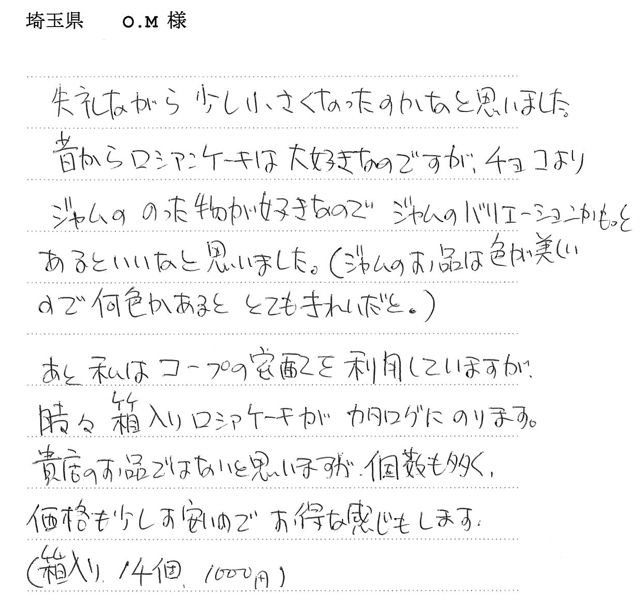 埼玉県　O.M 様
失礼ながら 少し小さくなったのかなと思いました。
昔からロシアンケーキは大好きなのですが、チョコより
ジャムの のった物が好きなので ジャムのバリエーションがもっと
あるといいなと思いました。(ジャムのお品は色が美しい
ので何色かあると とてもきれいだと。)
あと 私は コープの宅配を利用していますが
時々 箱入り ロシアケーキが カタログにのります。
貴店のお品ではないと思いますが、個数も多く、
価格も少しお安いので お得な感じもします。
(箱入り、14個、1000円)